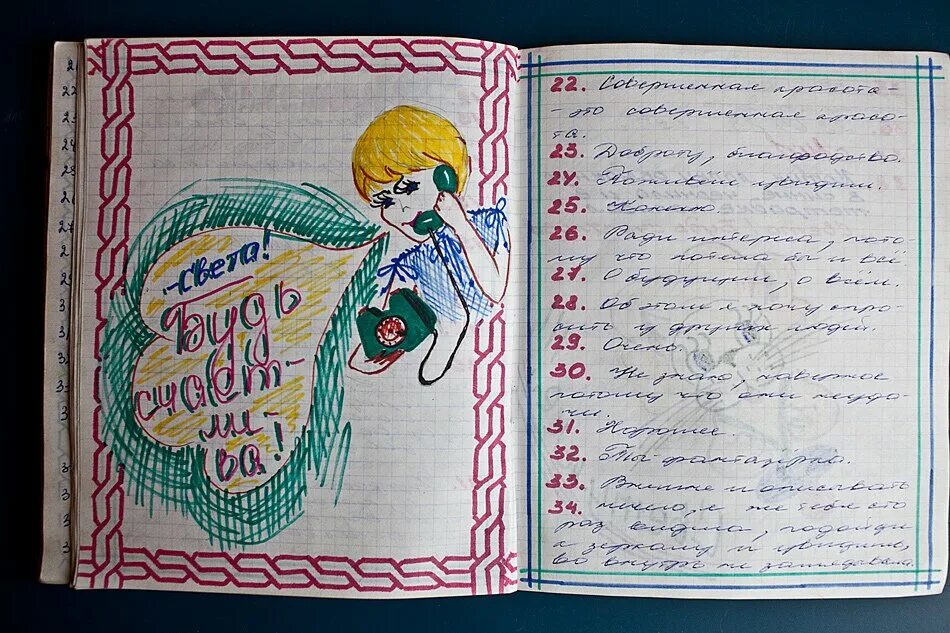 -Света!
Будь
счаст-
ли-
ва!
22. Совершенная красота -
- это совершенная красо-
та.
23. Доброту, благородство.
24. Поживём увидим.
25. Конечно
26. Ради интереса, пото-
му что хотела бы и всё
27. О будущем, о всём.
28. Об этом я хочу спро-
сить у других людей.
29. Очень.
30. Не знаю, наверное
потому что они неуда-
чи.
31. Хорошее.
32. Ты фантазёрка.
33. Внешне описывать
34. нечего, я же тебя сто
раз видела, подойди
к зеркалу и увидишь,
во внутрь не заглядывала